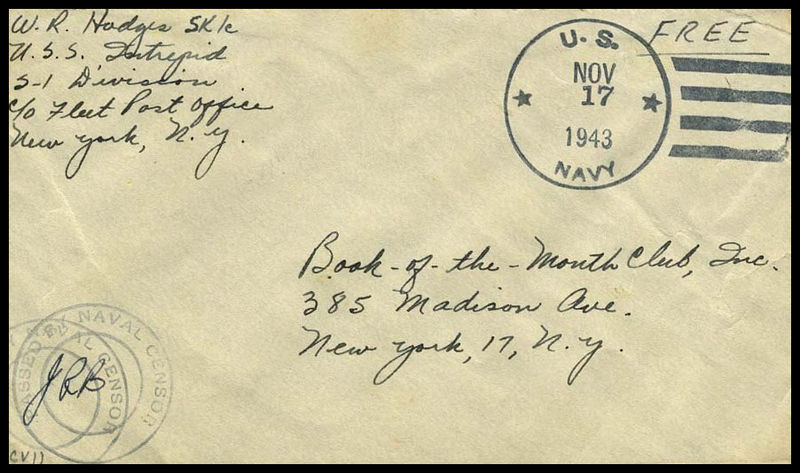 W. R. Hodges SK1c
U.S.S. Intrepid
S-1 Division
c/o Fleet Post Office
New York, N.Y.
FREE
U. S.
NOV
17
1943
NAVY
Book-of-the-Month Club, Inc.
385 Madison Ave.
New York, 17, N.Y.
PASSED BY NAVAL CENSOR
NAVAL CENSOR
JRB
CV11